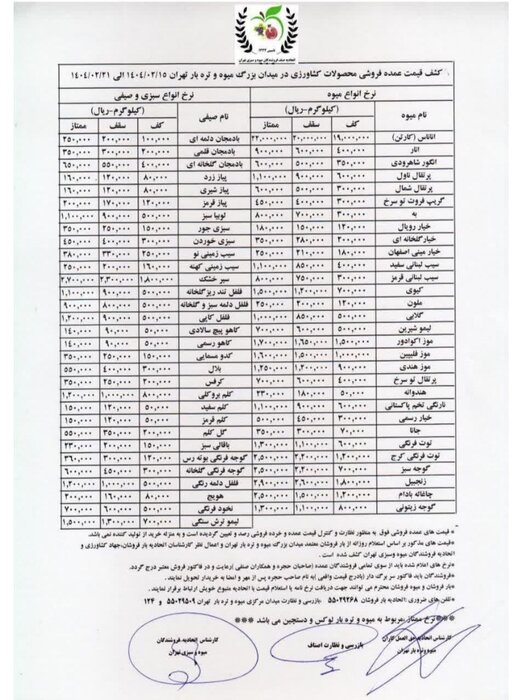 اتحادیه صنف فروشندگان میوه و سبزی تهران
کشف قیمت عمده فروشی محصولات کشاورزی در میدان بزرگ میوه و تره بار تهران ۱۴۰۴/۰۲/۱۵ الی ۱۴۰۴/۰۲/۲۱
نرخ انواع میوه نرخ انواع سبزی و صیفی
نام میوه (کیلوگرم-ریال) نام صیفی (کیلوگرم-ریال)
کف سقف ممتاز کف سقف ممتاز
آناناس (کارتن) ۱۹,۰۰۰,۰۰۰ ۲۰,۰۰۰,۰۰۰ ۲۲,۰۰۰,۰۰۰ بادمجان دلمه ای ۱۰۰,۰۰۰ ۲۰۰,۰۰۰ ۲۵۰,۰۰۰
انار ۴۰۰,۰۰۰ ۶۰۰,۰۰۰ ۹۰۰,۰۰۰ بادمجان قلمی ۲۰۰,۰۰۰ ۳۰۰,۰۰۰ ۳۵۰,۰۰۰
انگور شاهرودی ۳۵۰,۰۰۰ ۵۰۰,۰۰۰ ۶۰۰,۰۰۰ بادمجان گلخانه ای ۴۰۰,۰۰۰ ۵۵۰,۰۰۰ ۶۵۰,۰۰۰
پرتقال ناول ۶۰۰,۰۰۰ ۹۰۰,۰۰۰ ۱,۱۰۰,۰۰۰ پیاز زرد ۸۰,۰۰۰ ۱۲۰,۰۰۰ ۱۶۰,۰۰۰
پرتقال شمال ۳۰۰,۰۰۰ ۵۰۰,۰۰۰ ۶۰۰,۰۰۰ پیاز شیری ۸۰,۰۰۰ ۱۲۰,۰۰۰ ۱۶۰,۰۰۰
گریپ فروت تو سرخ ۳۰۰,۰۰۰ ۴۰۰,۰۰۰ ۴۵۰,۰۰۰ پیاز قرمز ۱۲۰,۰۰۰ ۱۷۰,۰۰۰ ۲۰۰,۰۰۰
به ۳۰۰,۰۰۰ ۷۰۰,۰۰۰ ۸۰۰,۰۰۰ لوبیا سبز ۵۰۰,۰۰۰ ۹۰۰,۰۰۰ ۱,۱۰۰,۰۰۰
خیار رویال ۱۲۰,۰۰۰ ۱۵۰,۰۰۰ ۱۸۰,۰۰۰ سبزی جور ۱۵۰,۰۰۰ ۲۵۰,۰۰۰ ۳۵۰,۰۰۰
خیار گلخانه ای ۲۰۰,۰۰۰ ۲۸۰,۰۰۰ ۳۵۰,۰۰۰ سبزی خوردن ۳۰۰,۰۰۰ ۴۰۰,۰۰۰ ۴۵۰,۰۰۰
خیار مینی اصفهان ۱۸۰,۰۰۰ ۲۱۰,۰۰۰ ۲۵۰,۰۰۰ سیب زمینی نو ۲۵۰,۰۰۰ ۳۳۰,۰۰۰ ۳۸۰,۰۰۰
سیب لبنانی سفید ۴۰۰,۰۰۰ ۸۵۰,۰۰۰ ۱,۱۰۰,۰۰۰ سیب زمینی کهنه ۱۶۰,۰۰۰ ۲۰۰,۰۰۰ ۲۵۰,۰۰۰
سیب لبنانی قرمز ۳۰۰,۰۰۰ ۷۵۰,۰۰۰ ۸۰۰,۰۰۰ سیر خشک ۱,۸۰۰,۰۰۰ ۲,۳۰۰,۰۰۰ ۲,۷۰۰,۰۰۰
کیوی ۷۰۰,۰۰۰ ۱,۲۰۰,۰۰۰ ۱,۵۰۰,۰۰۰ فلفل تند ریز گلخانه ۵۰۰,۰۰۰ ۹۰۰,۰۰۰ ۱,۱۰۰,۰۰۰
ملون ۱۲۰,۰۰۰ ۲۰۰,۰۰۰ ۲۵۰,۰۰۰ فلفل دلمه سبز و گلخانه ۵۰۰,۰۰۰ ۸۰۰,۰۰۰ ۹۰۰,۰۰۰
گلابی ۵۰۰,۰۰۰ ۸۵۰,۰۰۰ ۱,۰۰۰,۰۰۰ فلفل کاپی ۵۰۰,۰۰۰ ۹۰۰,۰۰۰ ۱,۲۰۰,۰۰۰
لیمو شیرین ۵۰۰,۰۰۰ ۶۰۰,۰۰۰ ۷۰۰,۰۰۰ کاهو پیچ سالادی ۵۰,۰۰۰ ۹۰,۰۰۰ ۱۴۰,۰۰۰
موز اکوادور ۱,۵۰۰,۰۰۰ ۱,۶۵۰,۰۰۰ ۱,۷۰۰,۰۰۰ کاهو رسمی ۵۰,۰۰۰ ۹۰,۰۰۰ ۱۴۰,۰۰۰
موز فلیپین ۱,۰۰۰,۰۰۰ ۱,۵۰۰,۰۰۰ ۱,۶۰۰,۰۰۰ کدو مسمایی ۱۵۰,۰۰۰ ۲۵۰,۰۰۰ ۳۵۰,۰۰۰
موز هندی ۹۰۰,۰۰۰ ۱,۲۰۰,۰۰۰ ۱,۲۵۰,۰۰۰ بلال ۳۰۰,۰۰۰ ۴۰۰,۰۰۰ ۵۵۰,۰۰۰
پرتقال تو سرخ ۴۰۰,۰۰۰ ۶۰۰,۰۰۰ ۷۰۰,۰۰۰ کرفس ۲۰۰,۰۰۰ ۲۵۰,۰۰۰ ۳۵۰,۰۰۰
هندوانه ۵۰,۰۰۰ ۱۸۰,۰۰۰ ۲۳۰,۰۰۰ کلم بروکلی ۸۰۰,۰۰۰ ۱,۰۰۰,۰۰۰ ۱,۲۰۰,۰۰۰
نارنگی تخم پاکستانی ۶۰۰,۰۰۰ ۹۰۰,۰۰۰ ۱,۱۰۰,۰۰۰ کلم سفید ۵۰,۰۰۰ ۱۲۰,۰۰۰ ۱۵۰,۰۰۰
خیار رسمی ۳۰۰,۰۰۰ ۴۵۰,۰۰۰ ۵۰۰,۰۰۰ کلم قرمز ۵۰,۰۰۰ ۱۲۰,۰۰۰ ۱۵۰,۰۰۰
جانا ۲۰۰,۰۰۰ ۳۰۰,۰۰۰ ۳۵۰,۰۰۰ گل کلم ۲۰۰,۰۰۰ ۳۵۰,۰۰۰ ۵۵۰,۰۰۰
توت فرنگی ۶۰۰,۰۰۰ ۱,۱۰۰,۰۰۰ ۱,۳۰۰,۰۰۰ باقالی سبز ۱۵۰,۰۰۰ ۲۰۰,۰۰۰ ۲۳۰,۰۰۰
توت فرنگی کرج ۱,۲۰۰,۰۰۰ ۲,۲۰۰,۰۰۰ ۲,۵۰۰,۰۰۰ گوجه فرنگی بوته رس ۱۲۰,۰۰۰ ۳۰۰,۰۰۰ ۳۶۰,۰۰۰
گوجه سبز ۷۰۰,۰۰۰ ۲,۲۰۰,۰۰۰ ۲,۵۰۰,۰۰۰ گوجه فرنگی گلخانه ۳۰۰,۰۰۰ ۴۵۰,۰۰۰ ۶۰۰,۰۰۰
زنجبیل ۱,۸۰۰,۰۰۰ ۲,۶۰۰,۰۰۰ ۲,۹۰۰,۰۰۰ فلفل دلمه رنگی ۵۰۰,۰۰۰ ۱,۲۰۰,۰۰۰ ۱,۴۰۰,۰۰۰
چاغاله بادام ۱,۲۰۰,۰۰۰ ۱,۵۰۰,۰۰۰ ۲,۵۰۰,۰۰۰ هویج ۸۰,۰۰۰ ۱۶۰,۰۰۰ ۲۰۰,۰۰۰
گوجه زیتونی ۸۰۰,۰۰۰ ۱,۱۰۰,۰۰۰ ۱,۳۰۰,۰۰۰ نخود فرنگی ۵۰۰,۰۰۰ ۶۰۰,۰۰۰ ۷۰۰,۰۰۰
لیمو ترش سنگی ۷۰۰,۰۰۰ ۱,۳۰۰,۰۰۰ ۱,۵۰۰,۰۰۰
* قیمت های عمده فروشی فوق به منظور نظارت و کنترل قیمت عمده و خرده فروشی رصد و تعیین گردیده است و به منزله خرید از تولید کننده نمی باشد.
*قیمت های مذکور بر اساس استعلام روزانه از بار فروشان معتمد میدان بزرگ میوه و تره بار تهران و اعمال نظر کارشناسان اتحادیه بار فروشان،جهاد کشاورزی و
اتحادیه فروشندگان میوه وسبزی تهران کشف شده است .
*نرخ های اعلام شده باید از سوی تمامی فروشندگان عمده (صاحبان حجره و همکاران صنفی) رعایت و در فاکتور فروش معتبر درج گردد.
*فروشندگان باید فاکتور سر برگ دار (بادرج قیمت واقعی )به نام صاحب حجره پس از مهر و امضا به خریدار تحویل نمایند.
*بار فروشان و میوه فروشان محترم می توانند جهت دریافت نرخ نامه یا استعلام قیمت با اتحادیه متبوع خویش ارتباط برقرار نمایند.
*تلفن های ضروری :اتحادیه بار فروشان ۵۵۰۴۹۲۶۸ بازرسی و نظارت میدان مرکزی میوه و تره بار تهران ۵۵۰۲۹۵۰۹ و ۱۲۴
*** نرخ ممتاز مربوط به میوه و تره بار لوکس و دستچین می باشد ***
کارشناس اتحادیه حق العمل کاران بازرسی و نظارت اصناف کارشناس اتحادیه فروشندگان
میوه وتره بار تهران میوه و سبزی تهران